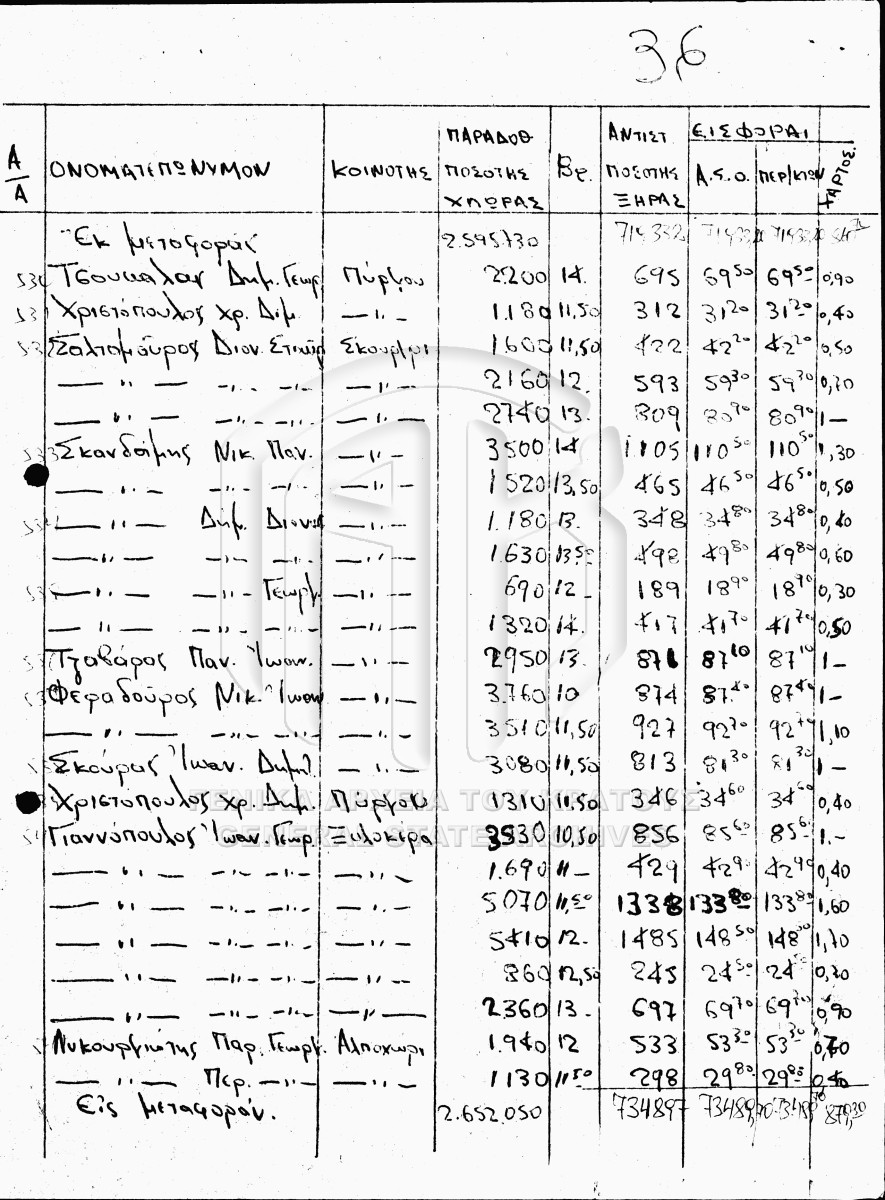 36
Α/Α ΟΝΟΜΑΤΕΠΩΝΥΜΟΝ ΚΟΙΝΟΤΗΣ ΠΑΡΑΔΟΘ ΠΟΣΟΤΗΣ ΧΛΩΡΑΣ Βρ. ΑΝΤΙΣΤ ΠΟΣΟΤΗΣ ΞΗΡΑΣ ΕΙΣΦΟΡΑΙ Α.Σ.Ο. ΠΕΡ/ΚΤΩΝ ΧΑΡΤΟΣ.
Ἐκ μεταφοράς 2.595.730 719.332
Τσουκαλας Δημ. Γεωρ Πύργου 2200 14. 695 69 50 69 50 0,90
531 Χριστόπουλος χρ. Δημ — " — 1.180 11,50 312 31 20 31 20 0,40
Διον. 1.600 11,50 422 42 20 42 20 0,50
— " — — " — — " — — " — 2160 12. 593 59 30 59 30 0,70
— " — — " — — " — — " — 2740 13. 809 80 90 80 90 1 —
533 Νικ. Παν. — " — 3500 14 1105 110 50 110 50 1,30
— " — — " — — " — — " — 1520 13,50 465 46 50 46 50 0,50
— " — Δημ. Διονυσ — " — 1.180 13. 348 34 80 34 80 0,40
— " — — " — — " — — " — 1.630 13 50 498 49 80 49 80 0,60
— " — — " — Γεωργ — " — 690 12 - 189 18 90 18 90 0,30
— " — — " — — " — — " — 1320 14. 417 41 70 41 70 0,50
Τζαβάρας Παν. Ἰωαν. — " — 2950 13. 871 87 10 87 10 1 —
Φεραδούρος Νικ. Ἰωαν — " — 3.760 10 874 87 40 87 40 1 —
— " — — " — — " — — " — 3510 11,50 927 92 70 92 70 1,10
Σκούρας Ἰωαν. Δημητ — " — 3080 11,50 813 81 30 81 30 1 —
Χριστόπουλος χρ. Δημ. Πύργου 1310 11.50 346 34 60 34 60 0,40
Γιαννόπουλος Ἰωαν. Γεωρ. Ξυλοκερα 3530 10,50 856 85 60 85 60 1. —
— " — — " — — " — — " — 1.690 11 — 429 42 90 42 90 0,40
— " — — " — — " — — " — 5070 11,50 1338 133 80 133 80 1,60
— " — — " — — " — — " — 5410 12. 1485 148 50 148 50 1,70
— " — — " — — " — — " — 860 12,50 245 24 50 24 50 0,30
— " — — " — — " — — " — 2360 13 - 697 69 70 69 70 0,90
Λυκουργιώτης Παρ. Γεωργ. Αλποχωρι 1.940 12 533 53 30 53 30 0,60
— " — Περ. — " — — " — 1130 11 50 298 29 80 29 80 0,40
Εἰς μεταφοράν. 2.652.050 734897
ΓΕΝΙΚΑ ΑΡΧΕΙΑ ΤΟΥ ΚΡΑΤΟΥΣ
GENERAL STATE ARCHIVES